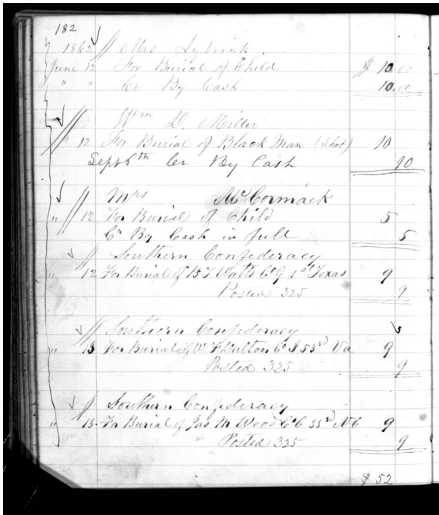 182
1862 Mrs Lybrick
June 12 For Burial of Child $ 10.00
" " " Cr By Cash 10.00
Wm D. Miller
" 12 For Burial of Black Man (Shot) 10
Sept 6th Cr By Cash 10
Mrs McCormack
" 12 For Burial of Child 5
Cr By Cash in full 5
Southern Confederacy
12 For Burial of B T Watts Co 1st Texas 9
Posted 325 9
Southern Confederacy
" 13 For Burial of W F Dalton Co 53rd Va 9
Posted 325 9
Southern Confederacy
" 13 For Burial of Jas M Wood Co 33rd NC 9
Posted 325 9
$ 52